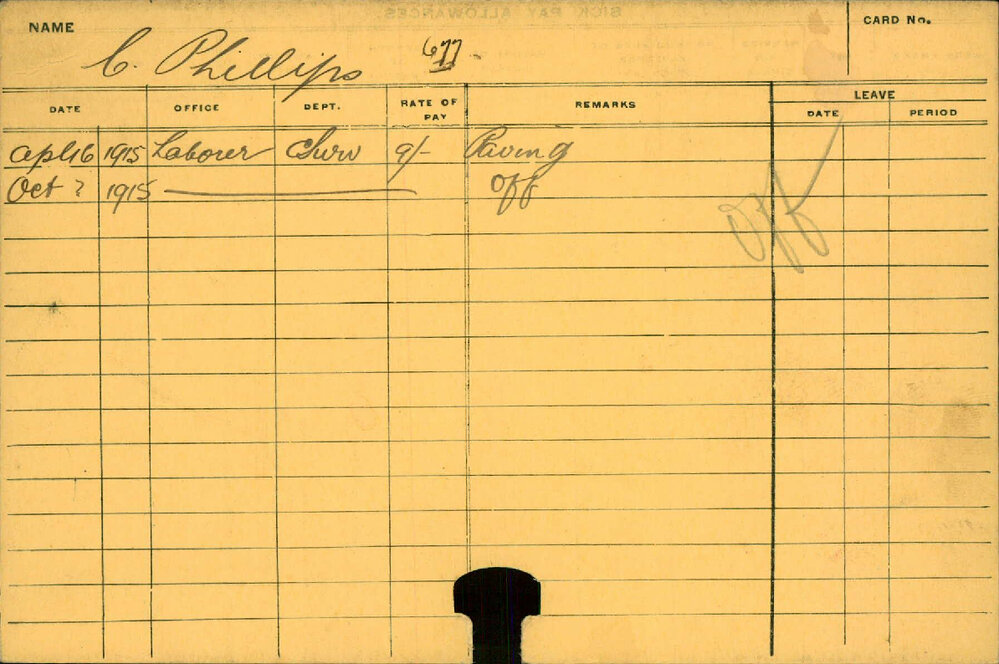 NAME
CARD No.
C. Phillips 677
DATE OFFICE DEPT. RATE OF PAY REMARKS LEAVE
DATE PERIOD
Apl 16 1915 Laborer 9/- Paving
Oct ? 1915 Off
Off